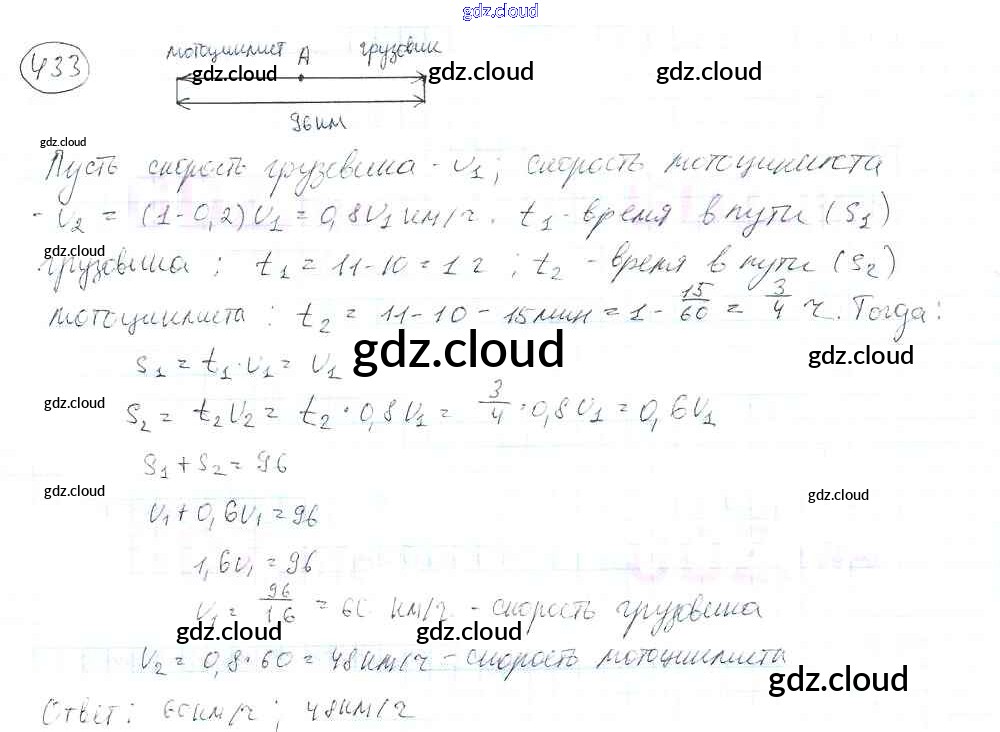 gdz.cloud
433
мотоциклист A грузовик
gdz.cloud gdz.cloud gdz.cloud
96 км
gdz.cloud
Пусть скорость грузовика - v₁; скорость мотоциклиста
- v₂ = (1-0,2)v₁ = 0,8v₁ км/ч. t₁ - время в пути (s₁)
gdz.cloud
грузовика ; t₁ = 11-10 = 1 ч ; t₂ - время в пути (s₂)
мотоциклиста : t₂ = 11-10-15мин = 1 - 15/60 = 3/4 ч. Тогда:
gdz.cloud gdz.cloud
s₁ = t₁·v₁ = v₁
gdz.cloud
s₂ = t₂v₂ = t₂·0,8v₁ = 3/4·0,8v₁ = 0,6v₁
s₁+s₂ = 96
gdz.cloud gdz.cloud
v₁+0,6v₁ = 96
1,6v₁ = 96
v₁ = 96/1,6 = 60 км/ч - скорость грузовика
gdz.cloud gdz.cloud
v₂ = 0,8·60 = 48км/ч - скорость мотоциклиста
gdz.cloud
Ответ: 60км/ч; 48км/ч